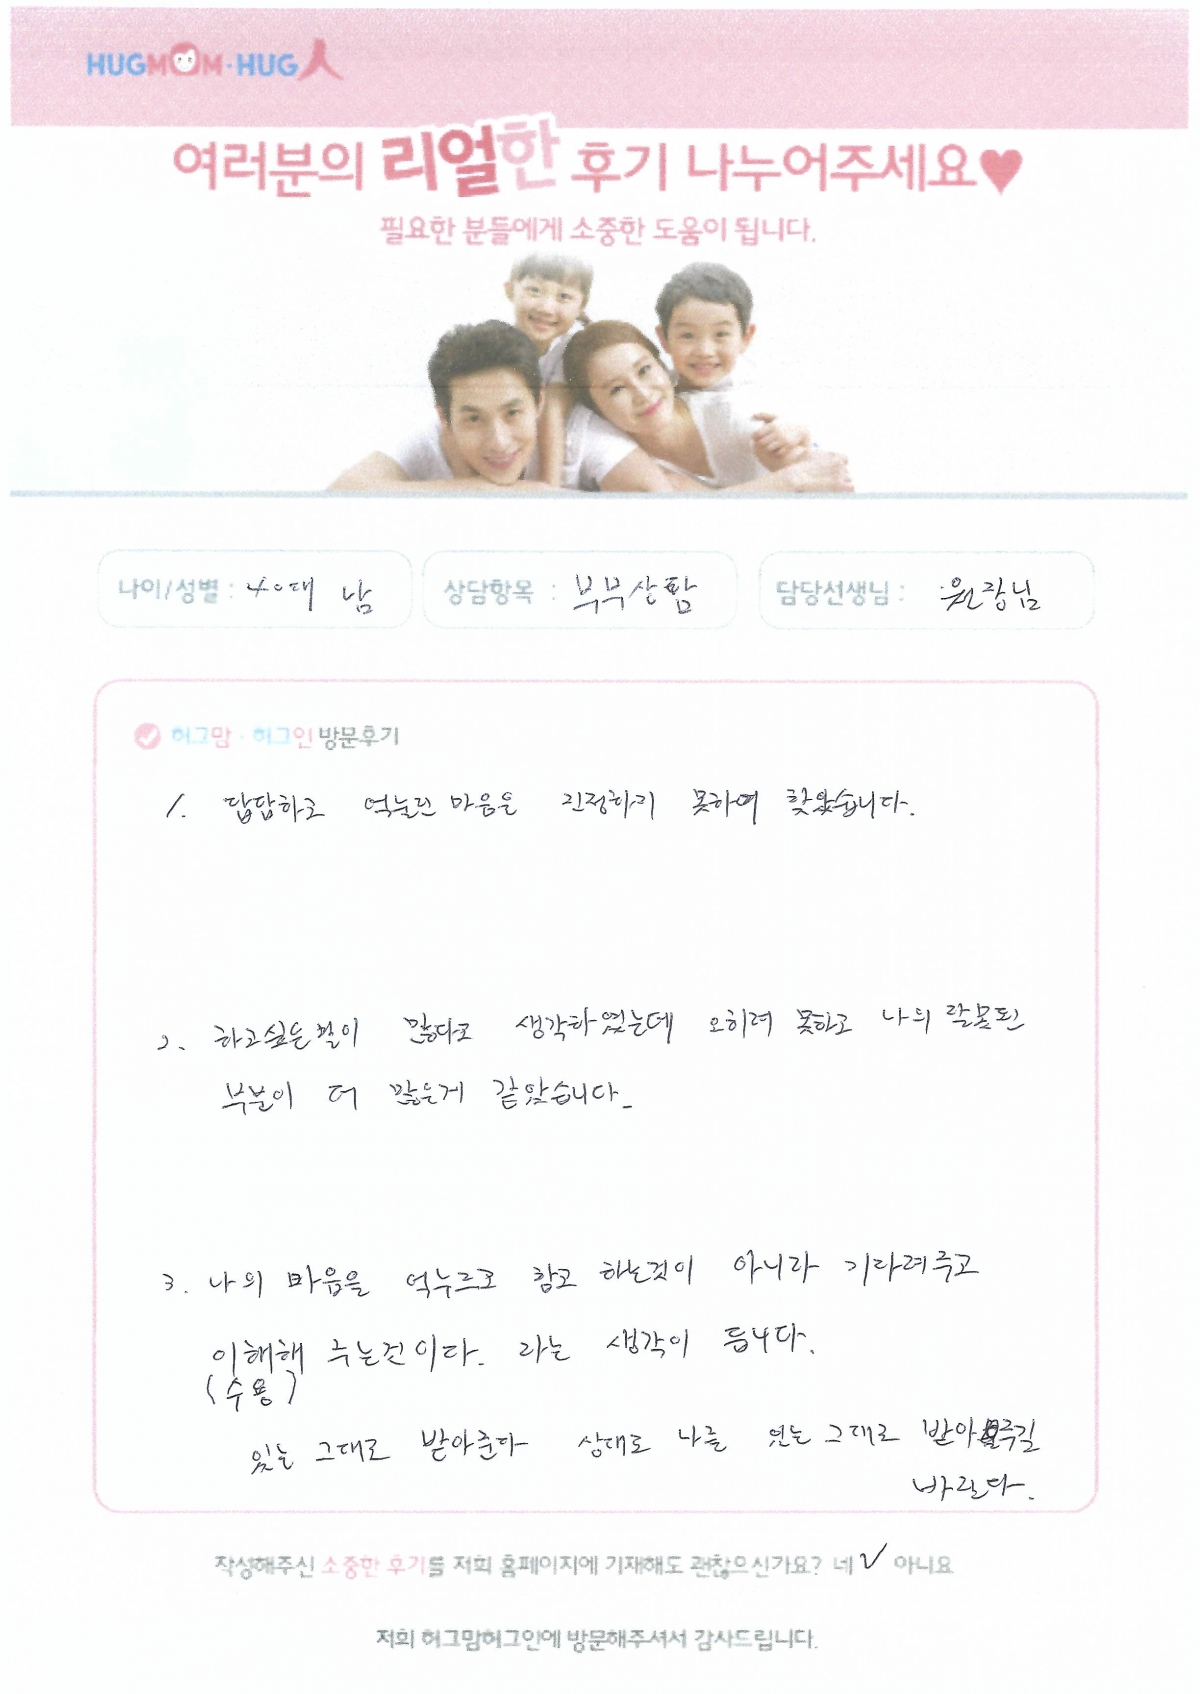 HUGMOM·HUG人
여러분의 리얼한 후기 나누어주세요♥
필요한 분들에게 소중한 도움이 됩니다.
나이/성별 : 40대 남
상담항목 : 부부상담
담당선생님 : 원장님
허그맘·허그인 방문후기
1. 답답하고 억눌린 마음을 진정하기 못하여 찾았습니다.
2. 하고싶은 말이 많다고 생각하였는데 오히려 못하고 나의 잘못된
부분이 더 많은게 같았습니다.
3. 나의 마음을 억누르고 참고 하는것이 아니라 기다려주고
이해해 주는것이다. 라는 생각이 듭니다.
(수용)
있는 그대로 받아준다 상대로 나를 있는 그대로 받아주길
바란다.
작성해주신 소중한 후기를 저희 홈페이지에 기재해도 괜찮으신가요? 네 ✓ 아니요
저희 허그맘허그인에 방문해주셔서 감사드립니다.